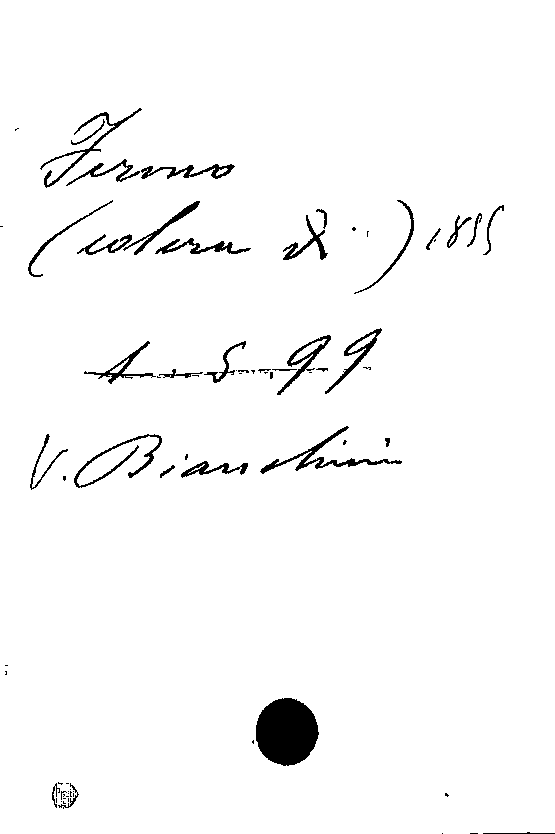 Fermo
(colera di) 1855
1.5.99
V. Bianchini